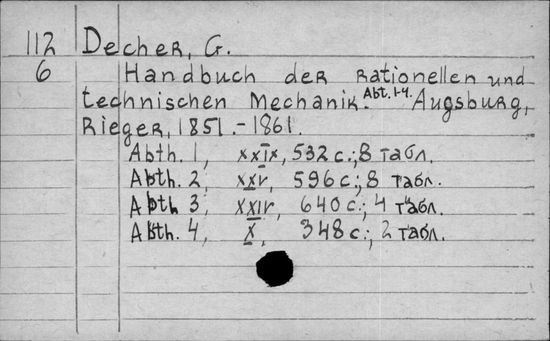 112 Decher, G.
6 Handbuch der rationellen und
technischen Mechanik. Abt. 1-4. Augsburg,
Rieger, 1851.-1861.
Abth. 1, XXIX, 532 с.; 8 табл.
Abth. 2, XXV, 596 с.; 8 табл.
Abth. 3, XXIV, 640 с.; 4 табл.
Abth. 4, X, 348 с.; 2 табл.